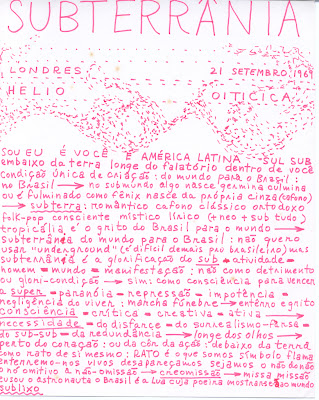 SUBTERRÂNIA
LONDRES 21 SETEMBRO, 1969
HÉLIO OITICICA
SOU EU É VOCÊ É AMÉRICA LATINA SUL SUB
embaixo da terra longe do falatório dentro de você
condição única de criação: do mundo para o Brasil:
no Brasil → no submundo algo nasce germina culmina
ou é fulminado como fênix nasce da própria cinza
→ subterra: romântico cafona clássico ortodoxo
folk-pop consciente místico lírico (+ neo + sub tudo)
tropicália é o grito do Brasil para o mundo →
subterrânea do mundo para o Brasil: não quero
usar "underground" (é difícil demais pro brasileiro) mas
subterrânea é a glorificação do sub → atividade =
homem = mundo = manifestação: não como detrimento
ou glori-condição → sim: como consciência para vencer
a super = paranóia = repressão = impotência =
negligência do viver: marcha fúnebre → enterro e grito
consciência = crítica = creativa = ativa →
necessidade = do disfarce = do surrealismo-farsa =
do sub-sub = da redundância → longe dos olhos →
perto do coração: ou da côr da ação: debaixo da terra
como rato de si mesmo: RATO é o que somos símbolo flama
enterremo-nos vivos desapareçamos sejamos o não do não
o no omitivo a não-omissão → creomissão = missa missão
cuzou o astronauta o Brasil é a lua cuja poeira mostrarse ao mundo
sublixo